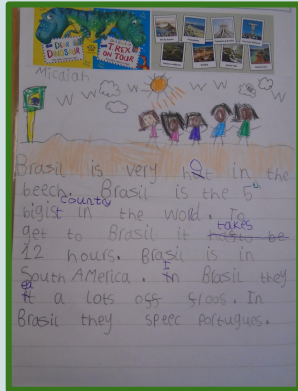 DINOSAUR
T.REX
ON TOUR
Micalah
Brasil is very hot in the
beech. Brasil is the 5
bigist country in the world. To
get to Brasil it takes
12 hours. Brasil is in
South AMerica. In Brasil they
eat a lots off froos. In
Brasil they speec portugues.